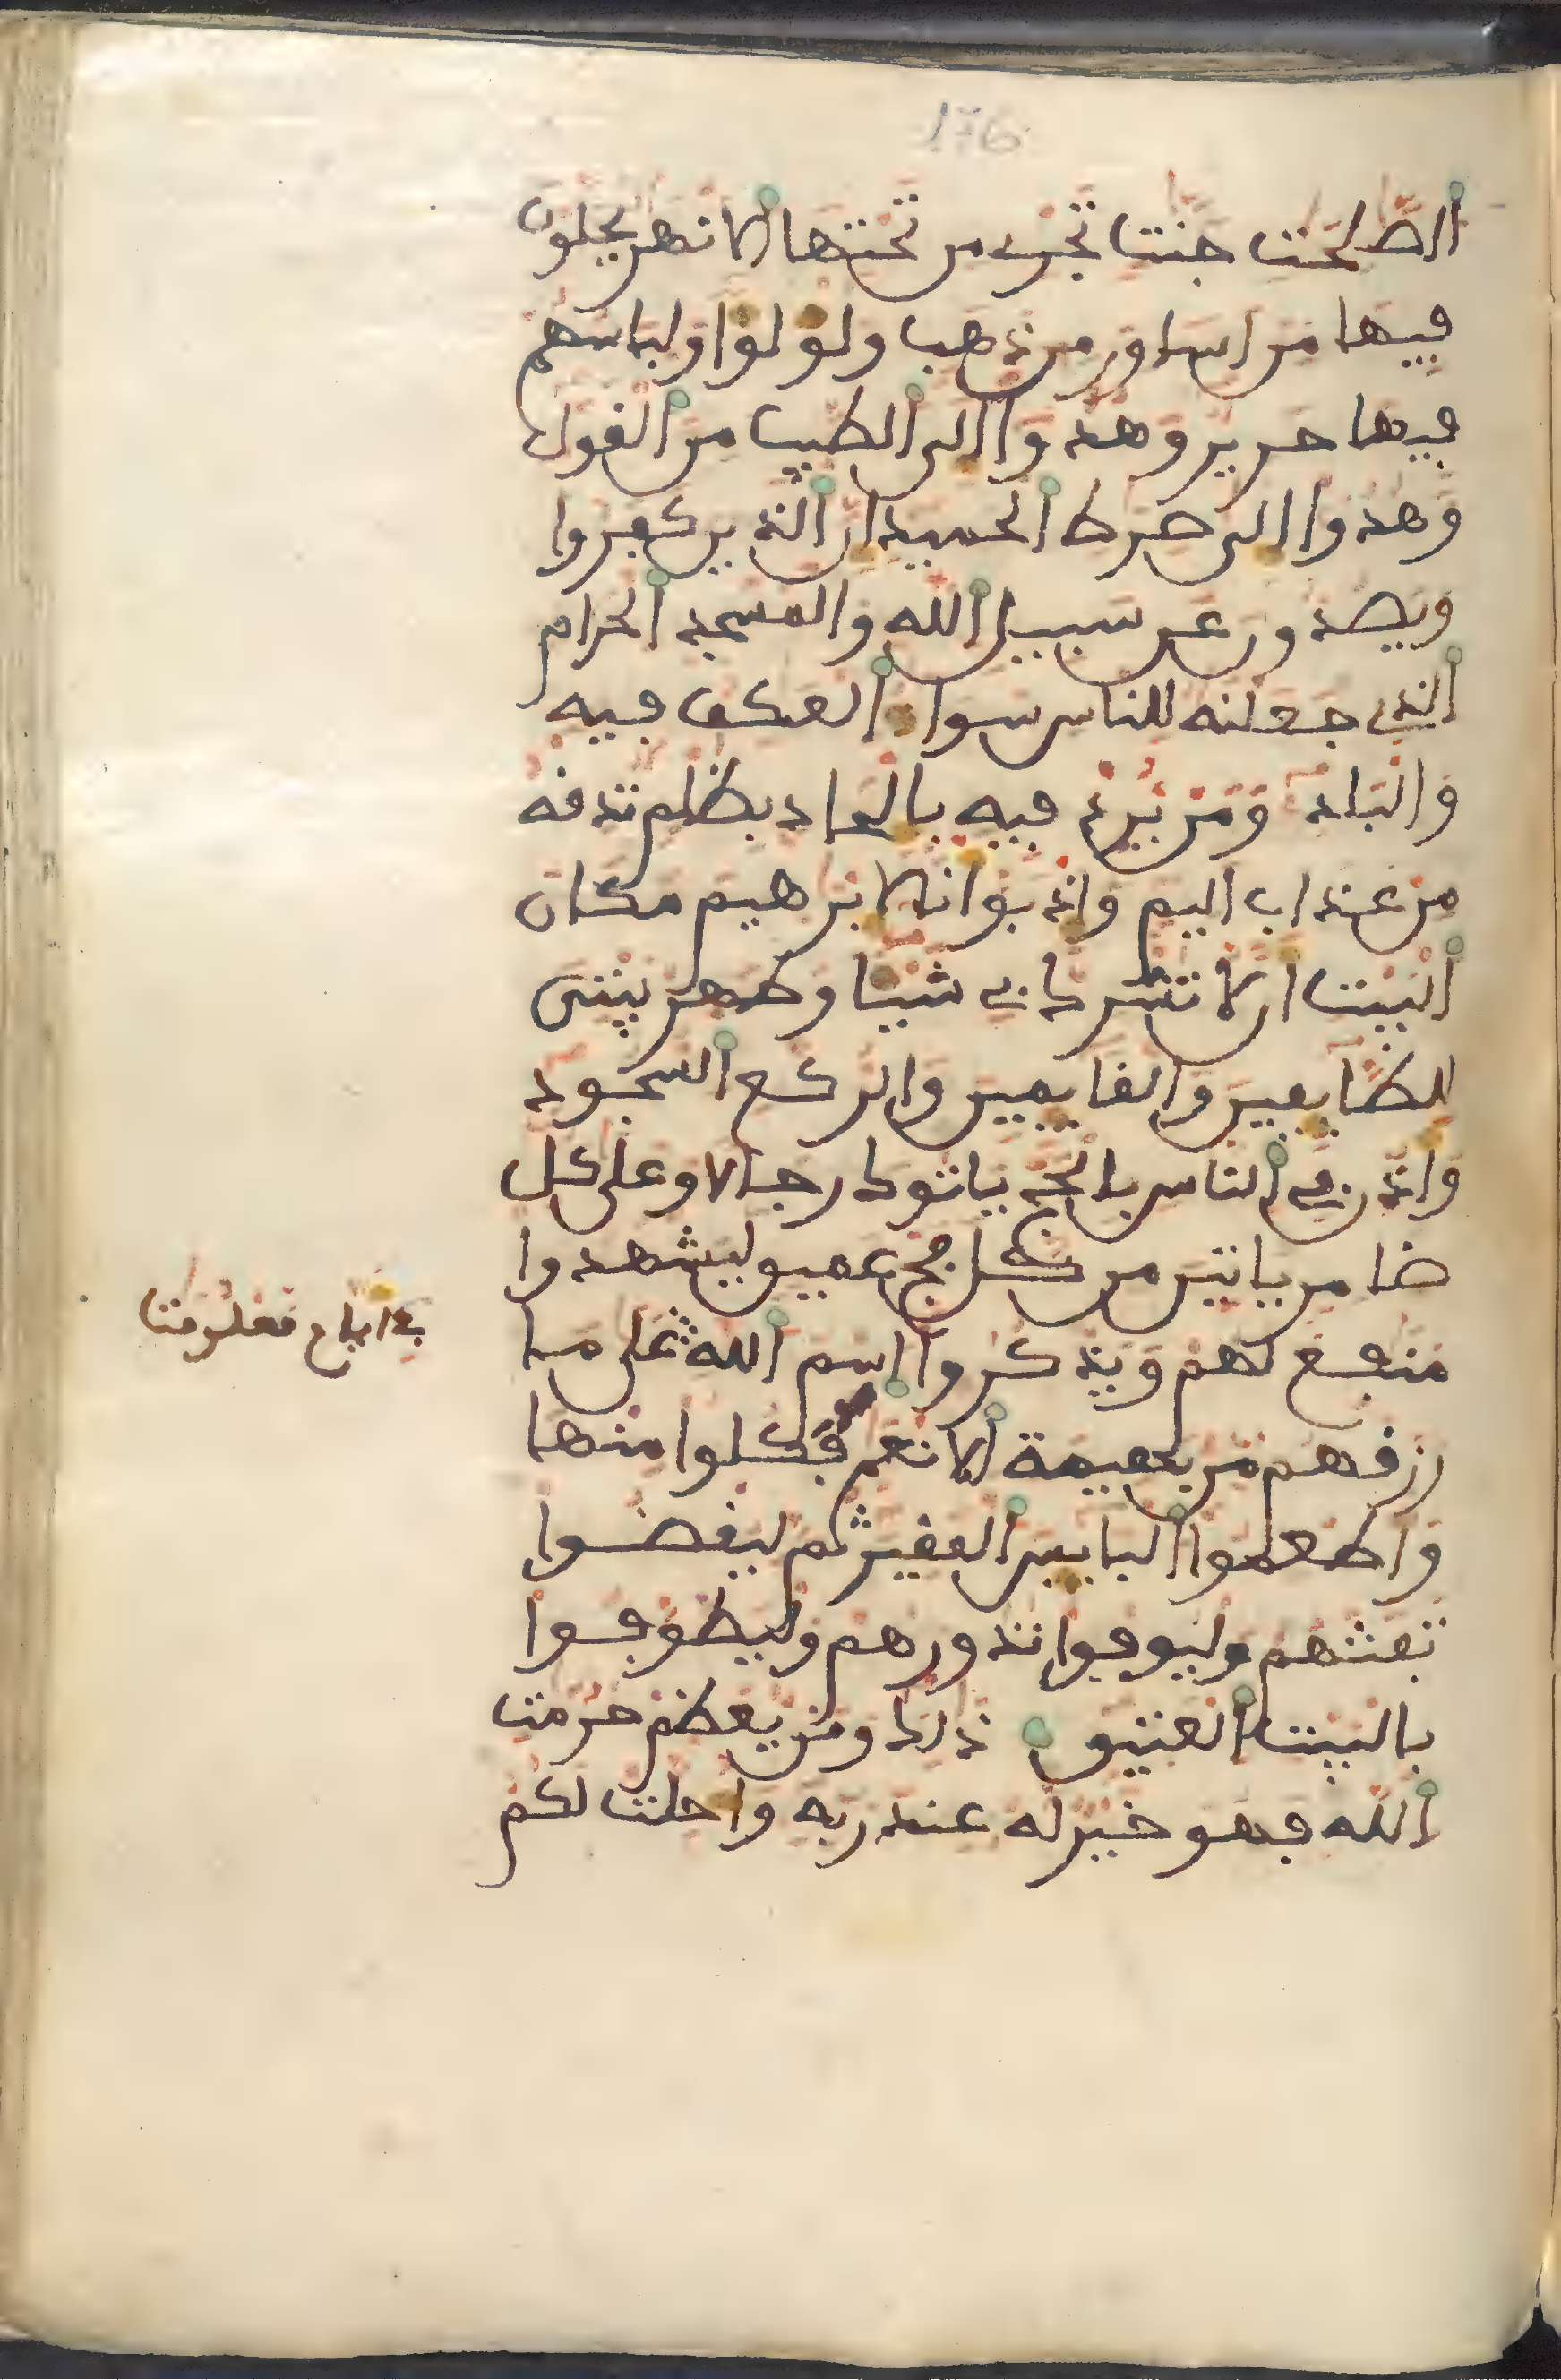 176
الصلحت جنت تجري من تحتها الانهر يحلون
فيها من اساور من ذهب ولولوا ولباسهم
فيها حرير وهدوا الى الطيب من القول
وهدوا الى صرط الحميد ان الذين كفروا
ويصدون عن سبيل الله والمسجد الحرام
الذي جعلنه للناس سوا العكف فيه
والباد ومن يرد فيه بالحاد بظلم نذقه
من عذاب اليم واذ بوانا لابرهيم مكان
البيت ان لا تشرك بي شيا وطهر بيتي
للطايفين والقايمين والركع السجود
واذن في الناس بالحج ياتوك رجالا وعلى كل
ضامر ياتين من كل فج عميق ليشهدوا
منفع لهم ويذكروا اسم الله على ما
في ايام معلومت
رزقهم من بهيمة الانعم فكلوا منها
واطعموا البايس الفقير ثم ليقضوا
تفثهم وليوفوا نذورهم وليطوفوا
بالبيت العتيق ذلك ومن يعظم حرمت
الله فهو خير له عند ربه واحلت لكم